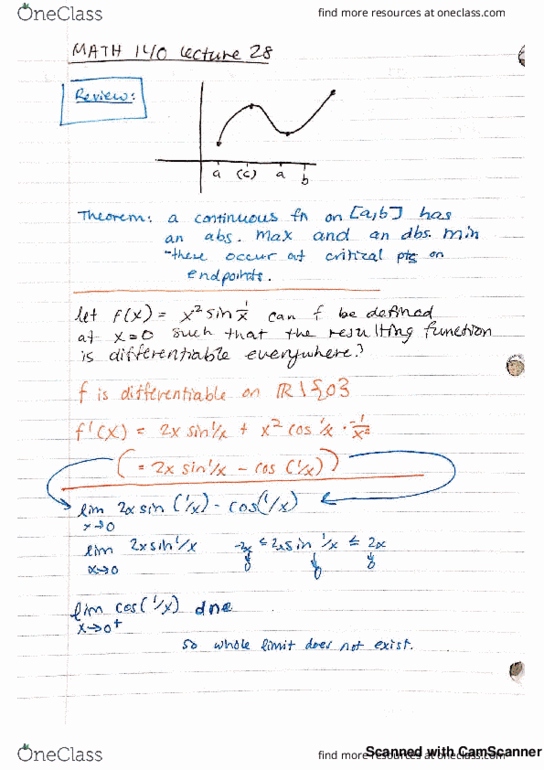 OneClass
find more resources at oneclass.com
MATH 140 Lecture 28
Review:
a (c) a b
Theorem: a continuous fn on [a,b] has
an abs. max and an abs. min
-these occur at critical pts on
endpoints.
let f(x) = x² sin 1/x can f be defined
at x=0 such that the resulting function
is differentiable everywhere?
f is differentiable on ℝ\{0}
f'(x) = 2x sin 1/x + x² cos 1/x · -1/x²
(= 2x sin 1/x - cos (1/x))
lim 2x sin (1/x) - cos(1/x)
x→0
lim 2x sin 1/x -2x ≤ 2x sin 1/x ≤ 2x
x→0 0 0 0
lim cos(1/x) dne
x→0+
so whole limit does not exist.
OneClass
find more resources at oneclass.com
Scanned with CamScanner